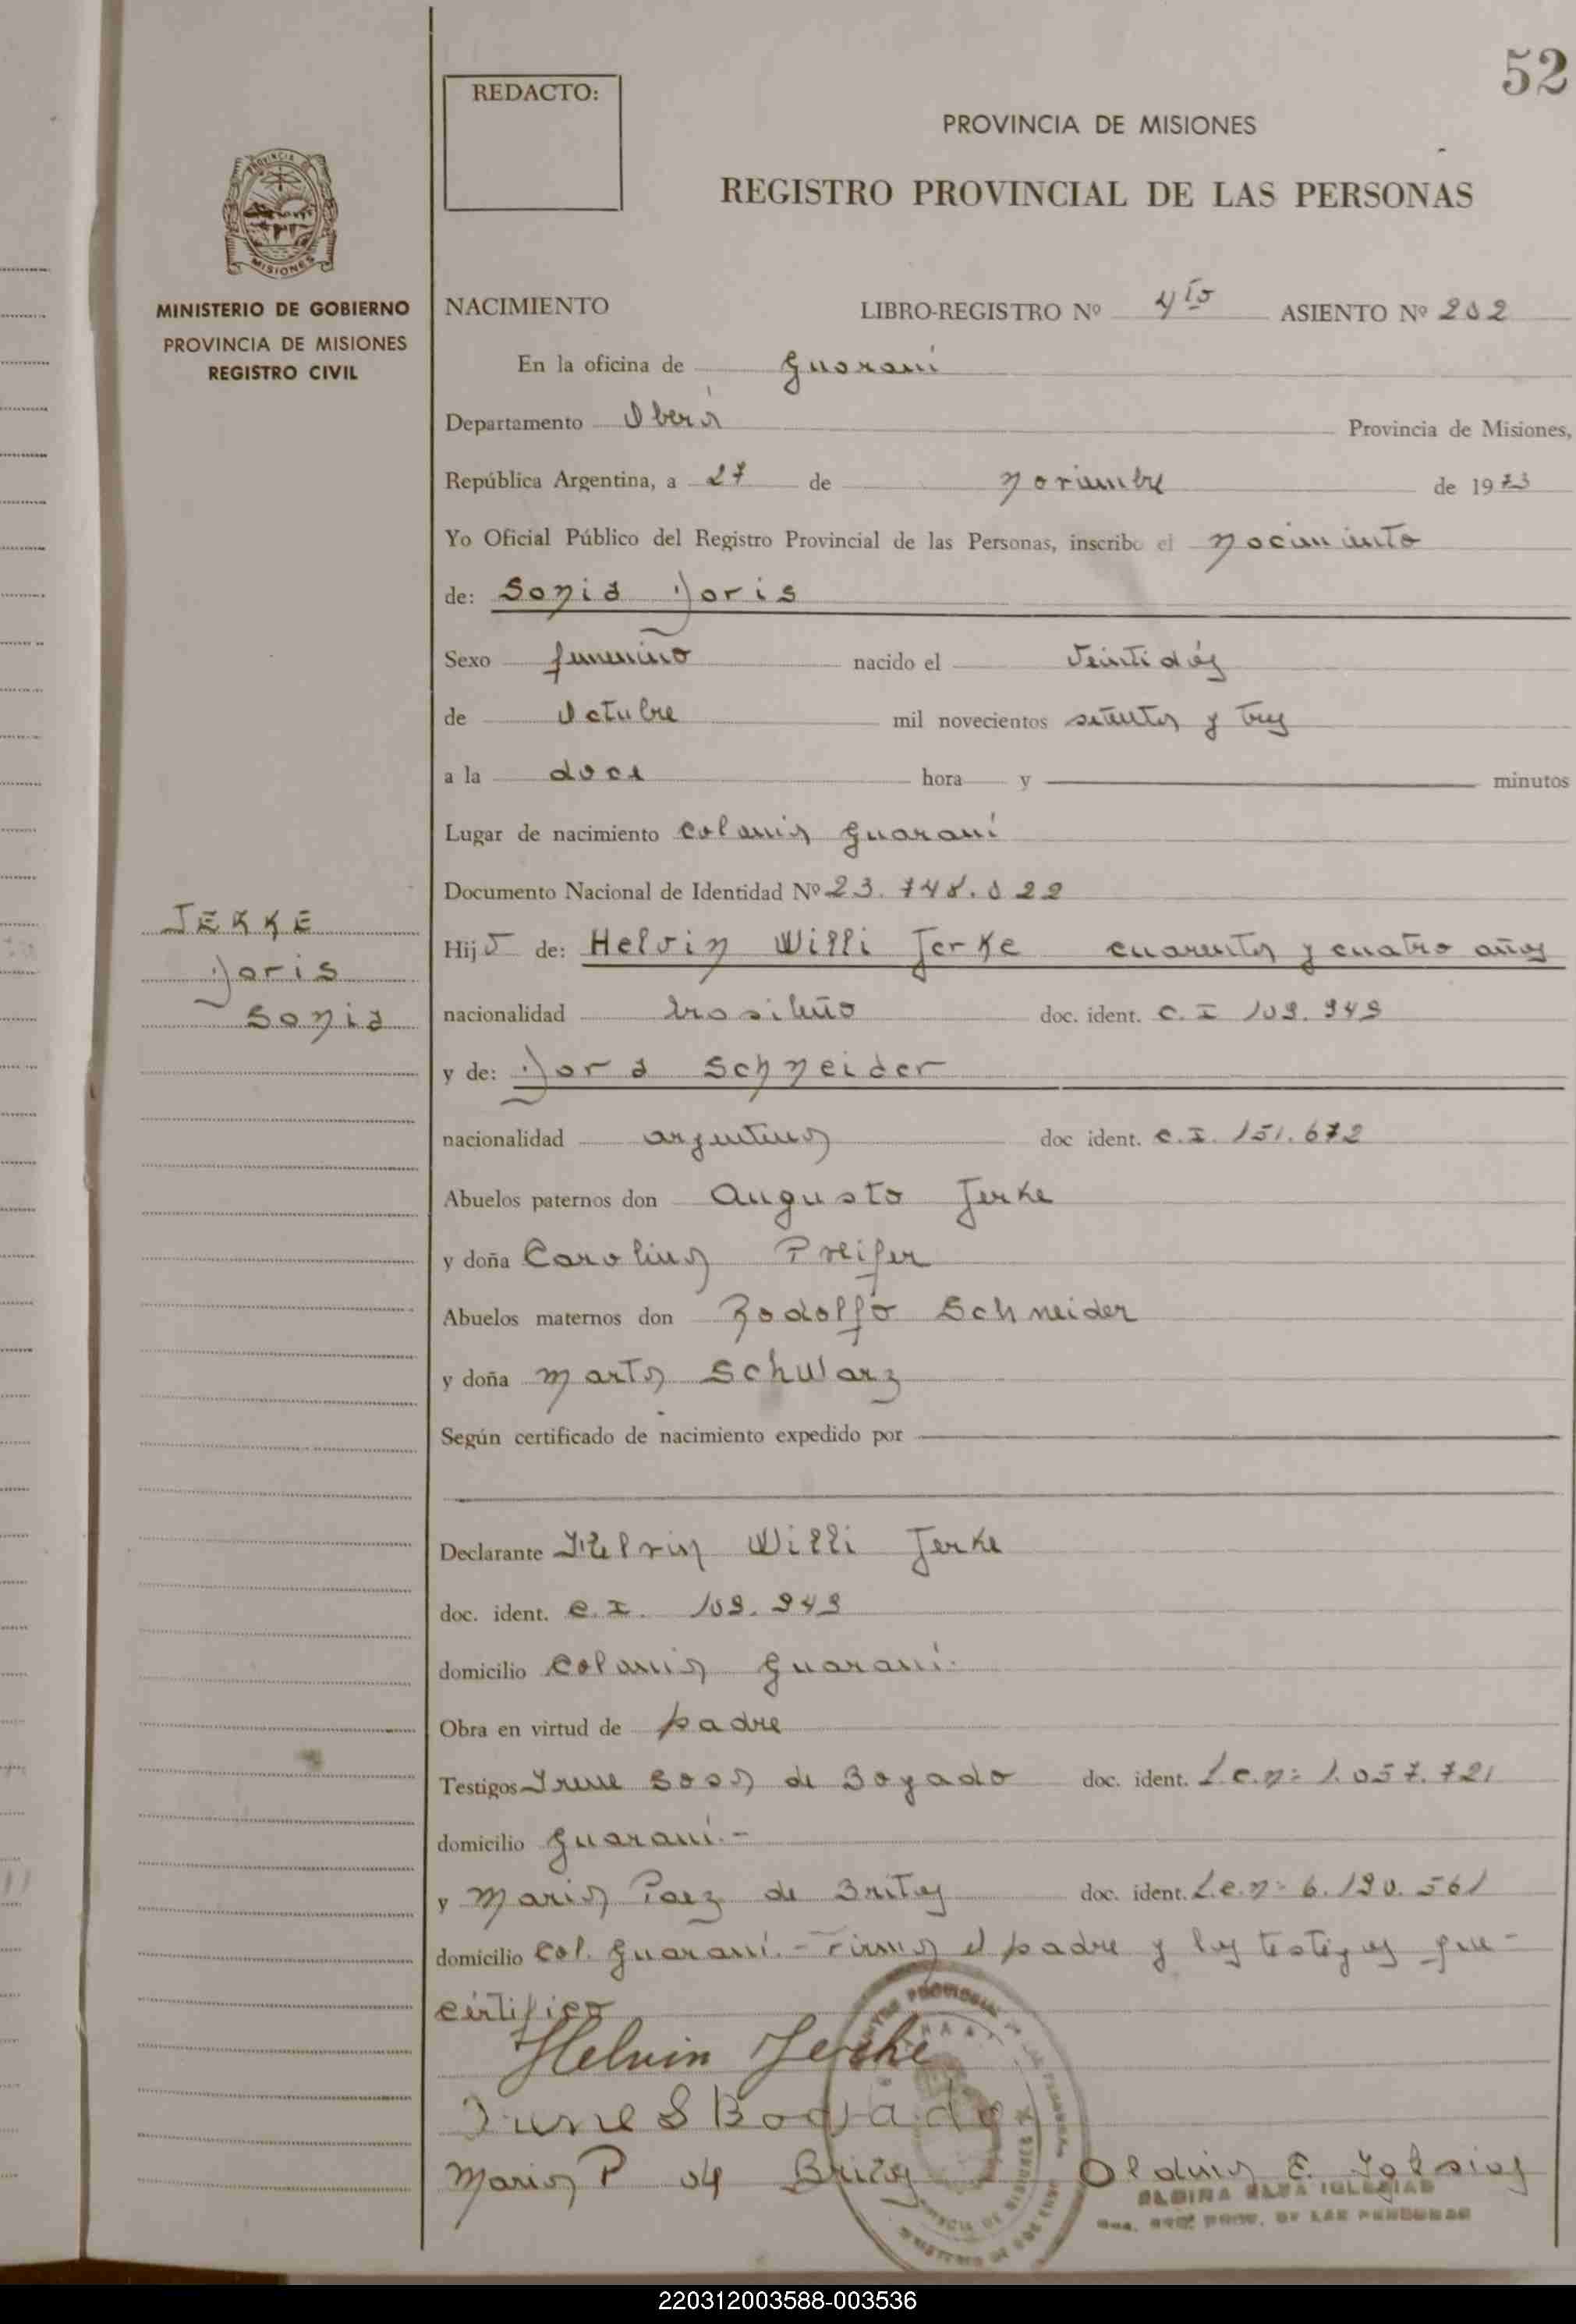 52
REDACTO:
PROVINCIA DE MISIONES
REGISTRO PROVINCIAL DE LAS PERSONAS
PROVINCIA DE
MISIONES
MINISTERIO DE GOBIERNO
PROVINCIA DE MISIONES
REGISTRO CIVIL
NACIMIENTO LIBRO-REGISTRO Nº 4to ASIENTO Nº 202
En la oficina de Guaraní
Departamento Oberá Provincia de Misiones,
República Argentina, a 27 de Noviembre de 1973
Yo Oficial Público del Registro Provincial de las Personas, inscribo el Nacimiento
de: Sonia Doris
Sexo femenino nacido el Veintidós
de Octubre mil novecientos setenta y tres
a la doce hora y minutos
Lugar de nacimiento Colonia Guaraní
Documento Nacional de Identidad Nº 23.748.022
JERKE
Doris
Sonia
Hij de: Helvin Willi Jerke cuarenta y cuatro años
nacionalidad brasileño doc. ident. C.I 109.949
y de: Dora Schneider
nacionalidad argentina doc ident. C.I. 151.672
Abuelos paternos don Augusto Jerke
y doña Carolina Preifer
Abuelos maternos don Rodolfo Schneider
y doña Marta Schwarz
Según certificado de nacimiento expedido por
Declarante Helvin Willi Jerke
doc. ident. C.I. 109.949
domicilio Colonia Guaraní.
Obra en virtud de padre
Testigos Irene de Boyado doc. ident. L.C.Nº 1.057.721
domicilio Guaraní.-
y Maria Paez de Brites doc. ident. L.C.Nº 6.190.561
domicilio Col. Guaraní.- Firma el padre y los testigos que-
certifico
Helvin Jerke
Irene S Boyado
Maria P de Britez Oldina E. Iglesias
ELBA IGLESIAS
PROV. DE LAS PERSONAS
220312003588-003536